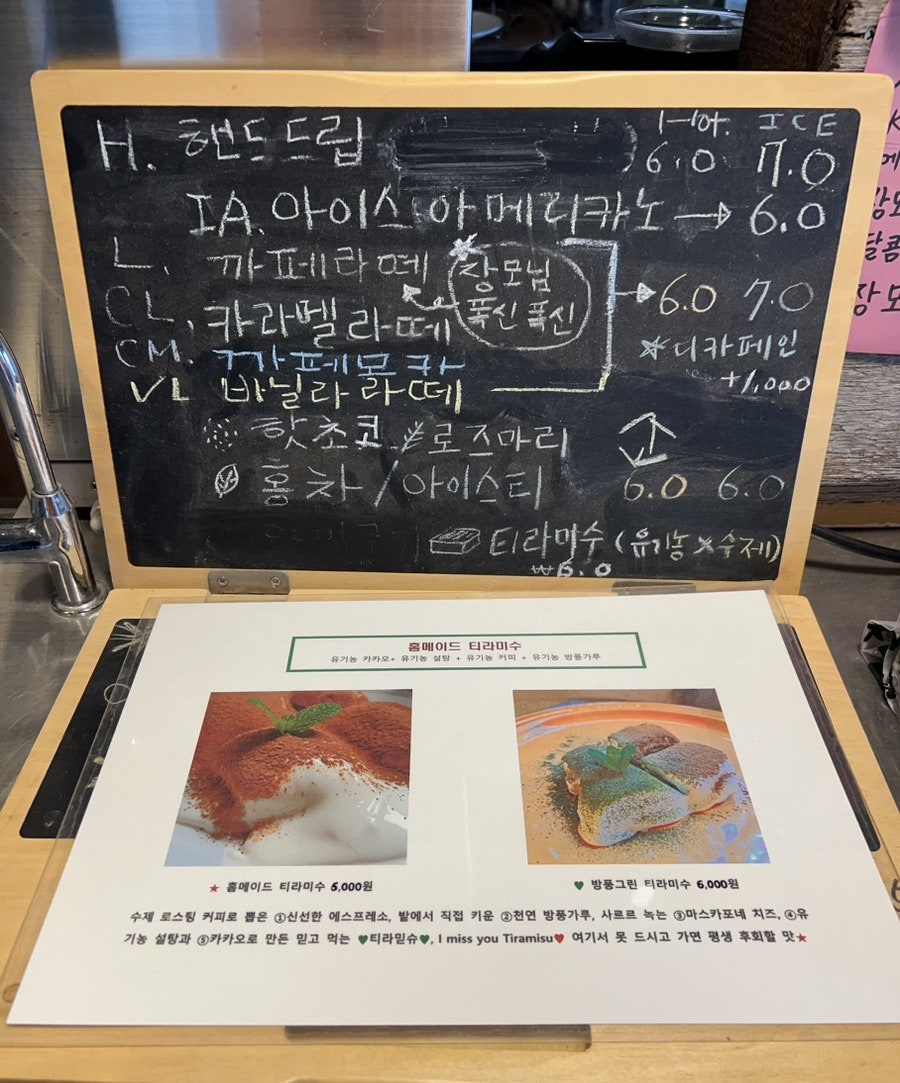 HOT. ICE
H. 핸드드립 6.0 7.0
IA. 아이스 아메리카노 → 6.0
L. 까페라떼
장모님
폭신폭신
CL. 카라멜라떼 6.0 7.0
CM. 까페모카 *디카페인
VL 바닐라라떼 +1,000
핫초코 로즈마리
홍차/아이스티 6.0 6.0
티라미수 (유기농 x 수제)
₩6.0
홈메이드 티라미수
유기농 카카오+ 유기농 설탕 + 유기농 커피 + 유기농 방풍가루
★ 홈메이드 티라미수 6,000원
♥ 방풍그린 티라미수 6,000원
수제 로스팅 커피로 뽑은 ①신선한 에스프레소, 밭에서 직접 키운 ②천연 방풍가루, 사르르 녹는 ③마스카포네 치즈, ④유
기농 설탕과 ⑤카카오로 만든 믿고 먹는 ♥티라믿슈♥, I miss you Tiramisu♥ 여기서 못 드시고 가면 평생 후회할 맛★